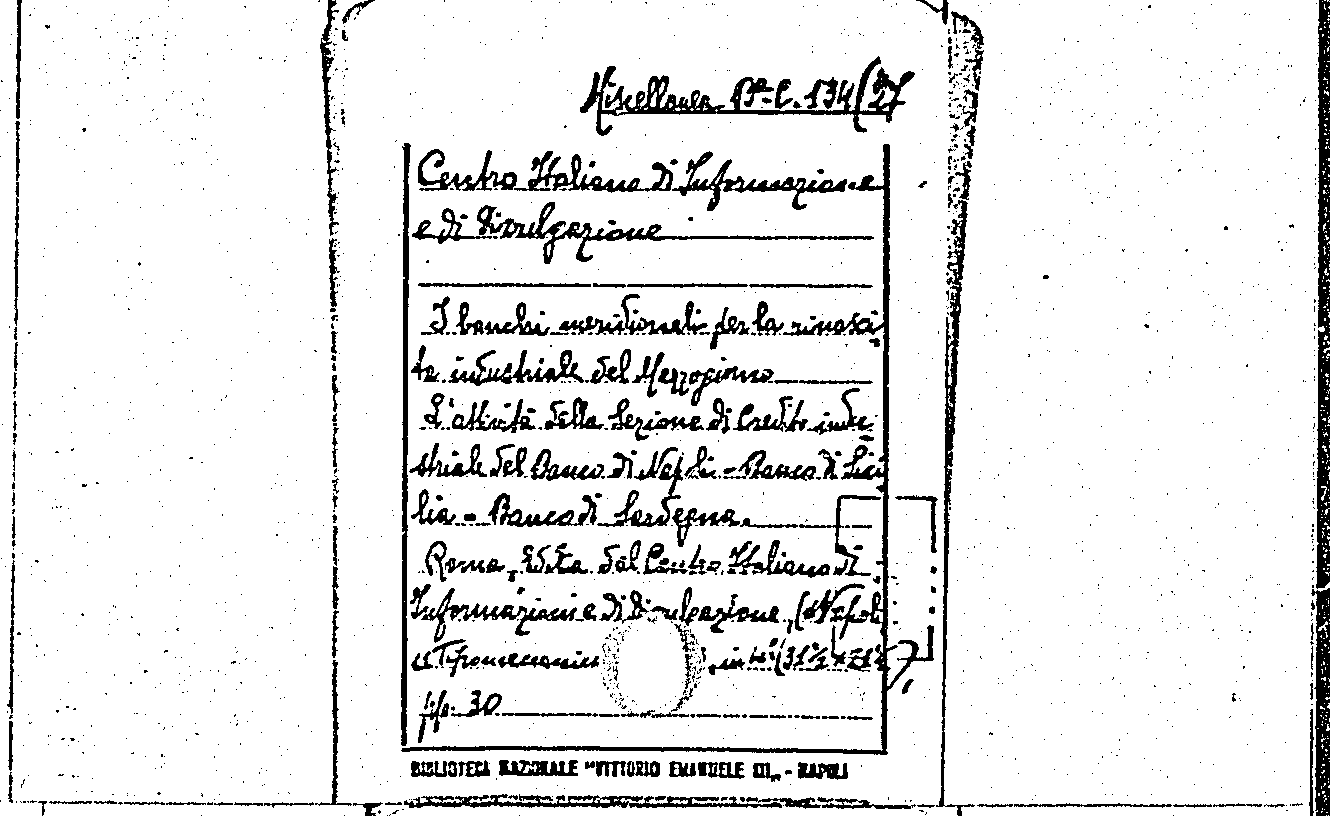 Miscellanea Bª-C. 134(27
Centro Italiano di Informazione
e di Divulgazione
I banchi meridionali per la rinasci
ta industriale del Mezzogiorno
L'attività della Sezione di Credito indu
striale del Banco di Napoli - Banco di Sici
lia - Banco di Sardegna.
Roma, Edita dal Centro Italiano di
Informazioni e di Divulgazione, (Napoli
in 4° (31½ x 21½)
pp. 30
BIBLIOTECA NAZIONALE "VITTORIO EMANUELE III„ - NAPOLI